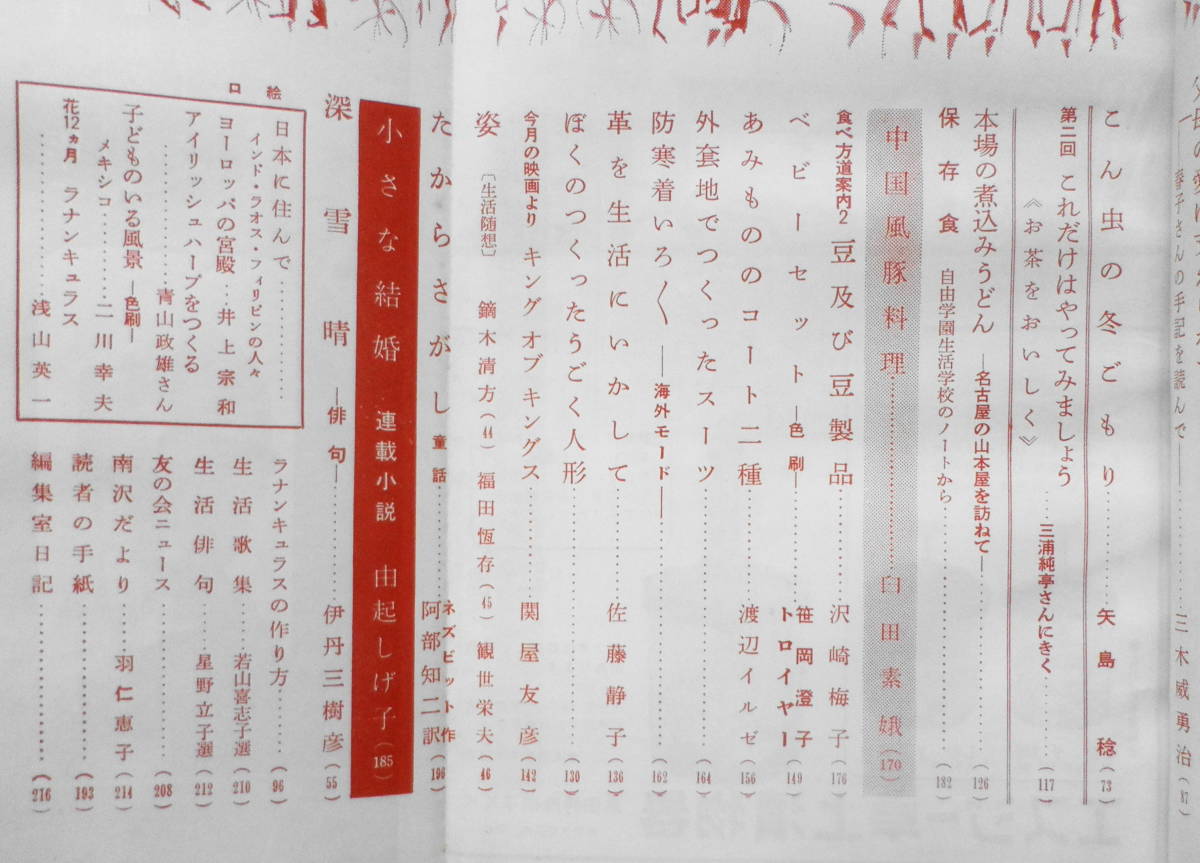 春子さんの手記を読んで 三木威勇治 (87)
こん虫の冬ごもり 矢島稔 (73)
第二回 これだけはやってみましょう
《お茶をおいしく》 三浦純亭さんにきく (117)
本場の煮込みうどん ―名古屋の山本屋を訪ねて― (126)
保存食 自由学園生活学校のノートから (182)
中国風豚料理 白田素娥 (170)
食べ方道案内2 豆及び豆製品 沢崎梅子 (176)
ベビーセット ―色刷― 笹岡澄子 トロイヤー (149)
あみもののコート二種 渡辺イルゼ (156)
外套地でつくったスーツ (164)
防寒着いろ〱 ―海外モード― (162)
革を生活にいかして 佐藤静子 (136)
ぼくのつくったうごく人形 (130)
今月の映画より キングオブキングス 関屋友彦 (142)
姿 〔生活随想〕 鏑木清方 (44) 福田恆存 (45) 観世栄夫 (46)
たからさがし 童話 ネズビット作 阿部知二訳 (196)
小さな結婚 連載小説 由起しげ子 (185)
深雪晴 ―俳句― 伊丹三樹彦 (55)
口絵
日本に住んで
インド・ラオス・フィリピンの人々
ヨーロッパの宮殿 井上宗和
アイリッシュハープをつくる
青山政雄さん
子どものいる風景 ―色刷―
メキシコ 二川幸夫
花12ヵ月 ラナンキュラス
浅山英一
ラナンキュラスの作り方 (96)
生活歌集 若山喜志子選 (210)
生活俳句 星野立子選 (212)
友の会ニュース (208)
南沢だより 羽仁恵子 (214)
読者の手紙 (193)
編集室日記 (216)